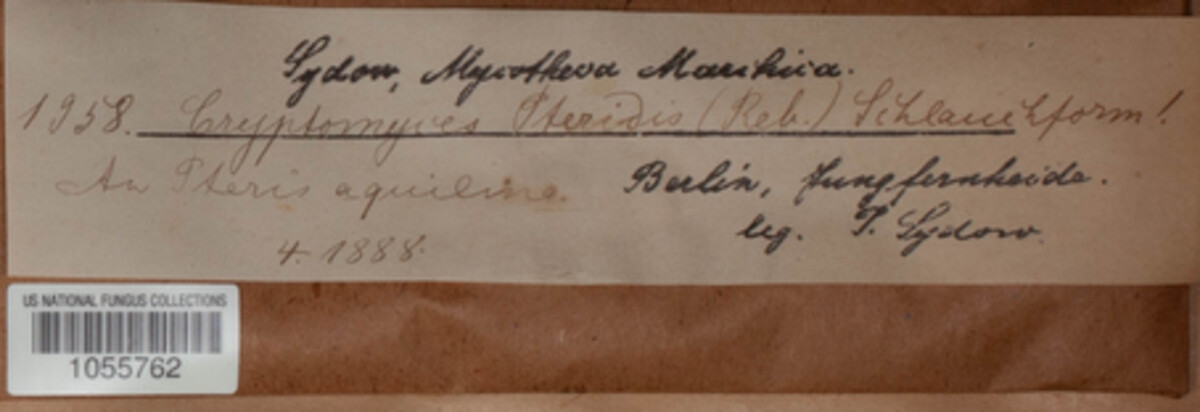 Sydow, Mycotheca Marchica.
1958. Cryptomyces Pteridis (Reb.) Schlauchform!
An Pteris aquilina. Berlin, Jungfernheide.
4. 1888. leg. P. Sydow.
US NATIONAL FUNGUS COLLECTIONS
1055762